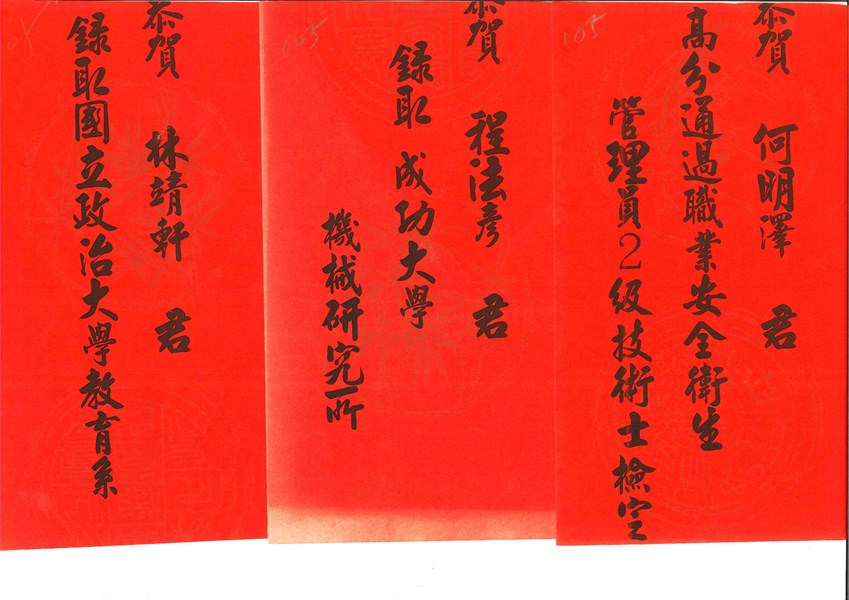 恭賀 何明澤 君
高分通過職業安全衛生
管理員2級技術士檢定
恭賀 程法彥 君
錄取 成功大學
機械研究所
恭賀 林靖軒 君
錄取國立政治大學教育系
105
105
05